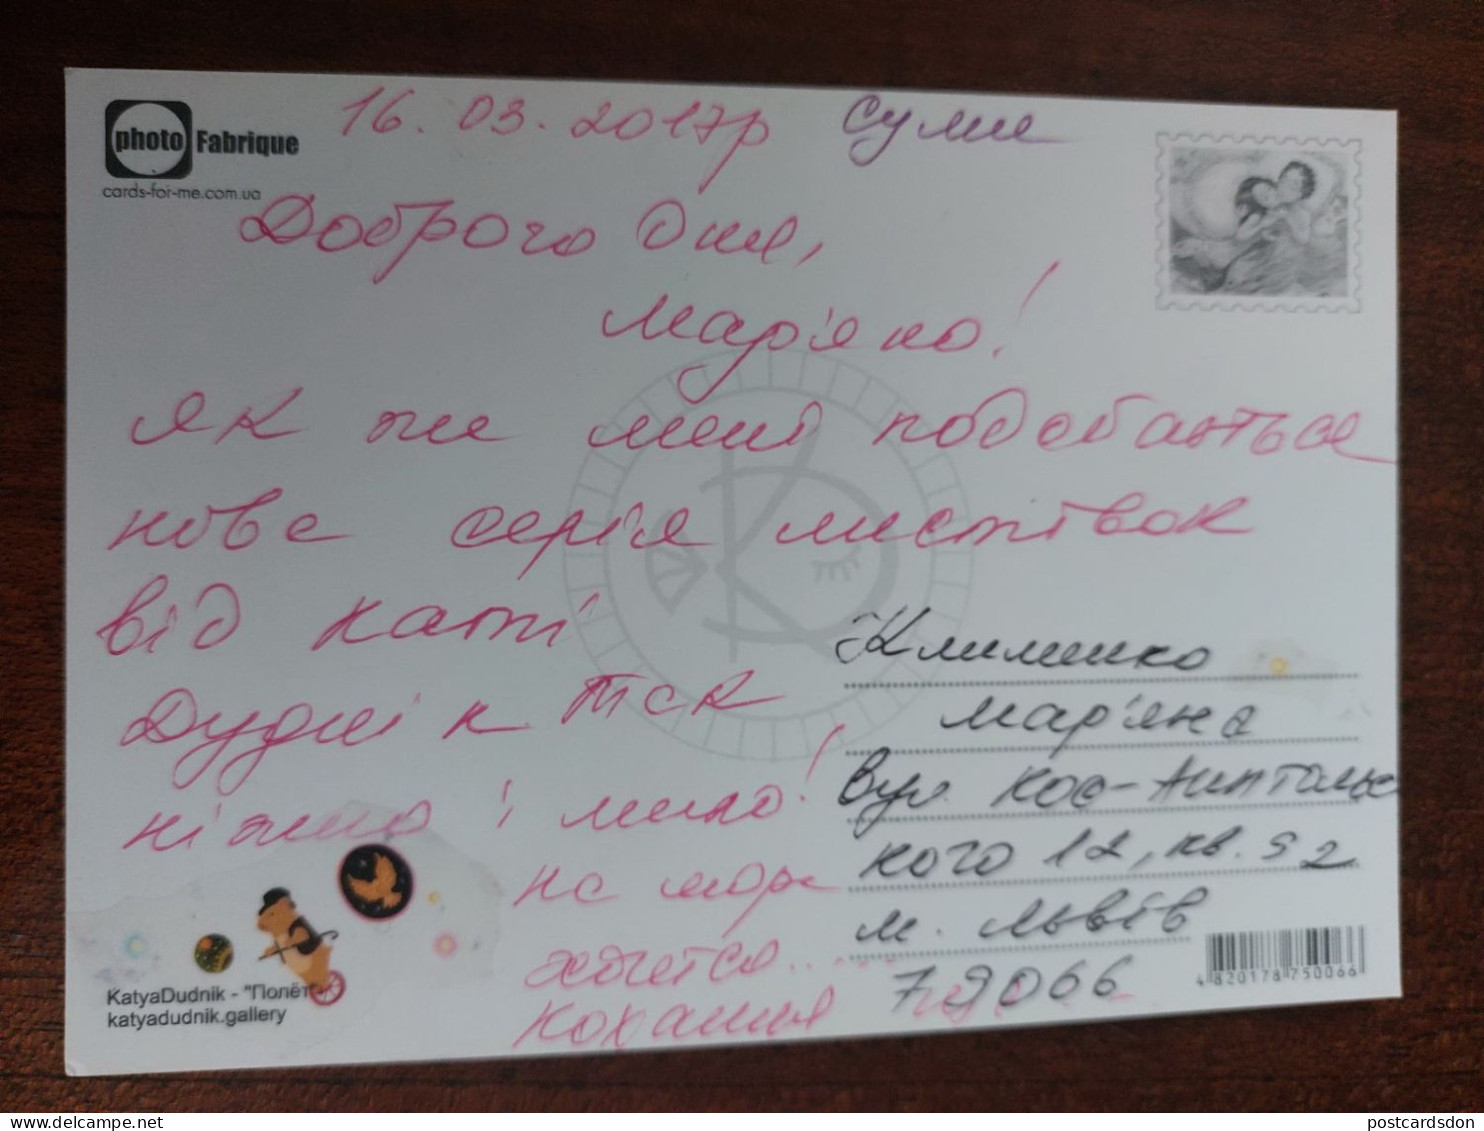 photo Fabrique
cards-for-me.com.ua
16.03.2017р Суми
Доброго дня,
Мар'яно!
Як же мені подобається
нова серія листівок
від Каті
Дуднік Так
ніжно і мило!
На море
хочется.....
Кохання
Клименко
Мар'яна
вул. Кос-Анатольс
кого 12, кв. 52
м. Львів
79066
4 820178 750066
KatyaDudnik - "Полёт"
katyadudnik.gallery
postcardsdon